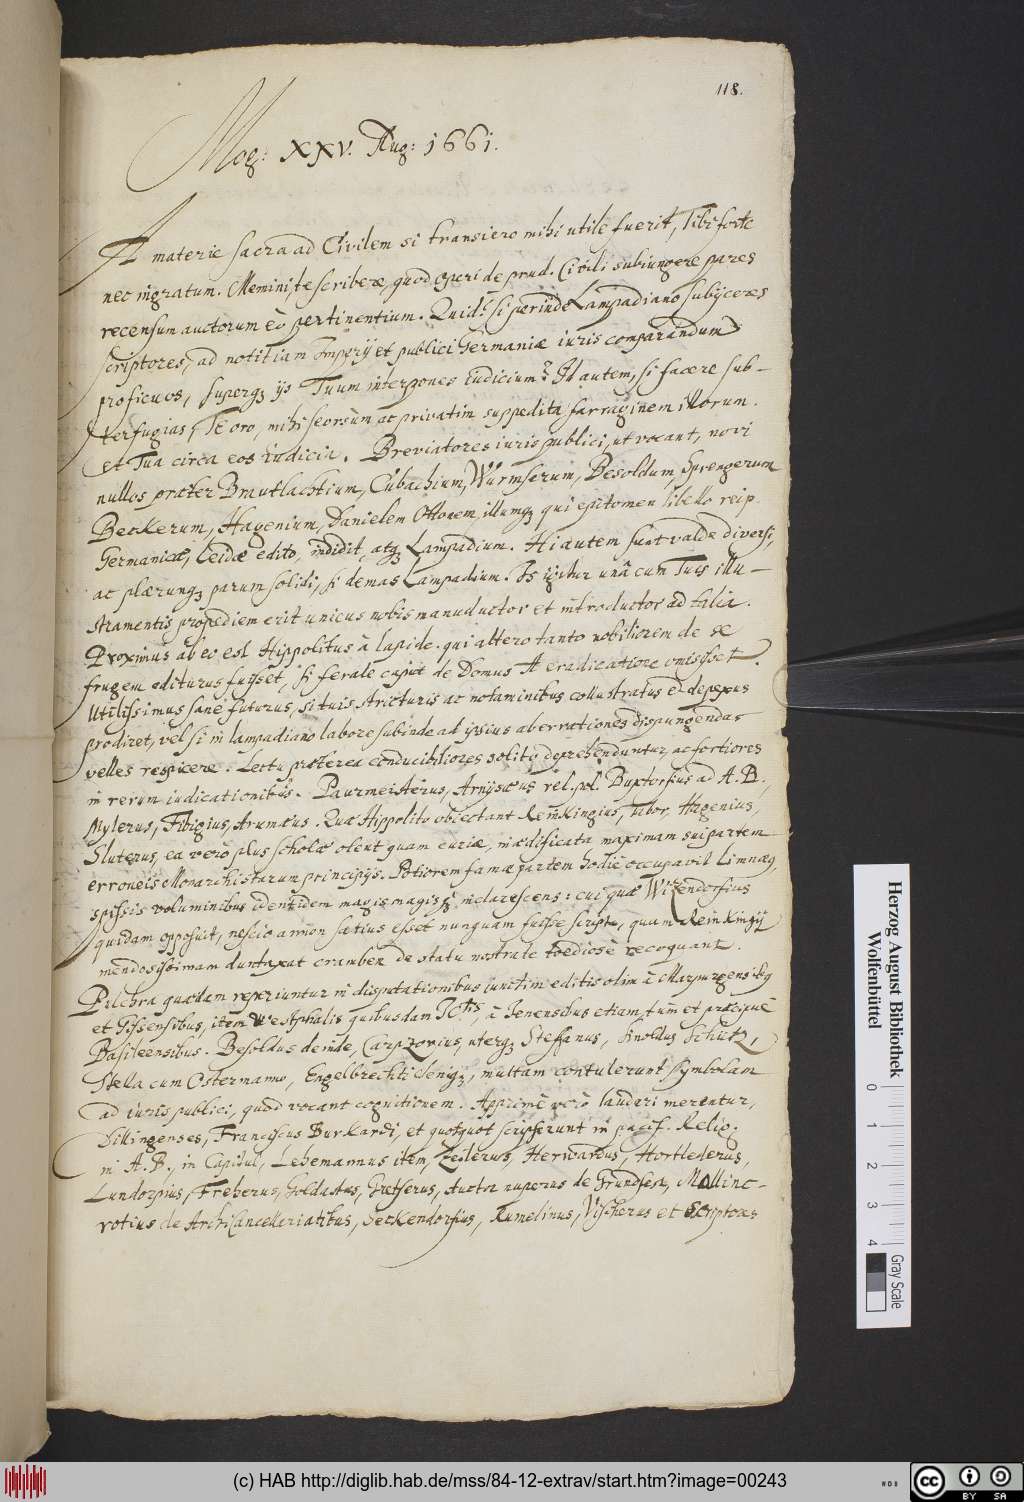 118.
Mog: XXV. Aug: 1661.
A materie sacra ad Civilem si transiero mihi utile fuerit, Tibi forte
nec ingratum. Memini, te scribere, quod operi de prud. Civili subiungere pares
recensum auctorum eò pertinentium. Quid? si perinde Lampadiano subijceres
scriptores, ad notitiam Imperij et publici Germaniæ iuris comparandum
proficuos, superq; ijs Tuum interpones iudicium? Id autem, si facere sub-
terfugias, Te oro, mihi seorsim ac privatim suppedita farraginem illorum.
et Tua circa eos iudicia. Breviatores iuris publici, ut vocant, novi
nullos præter Brautlachtium, Cubachium, Wurmserum, Besoldum, Sprengerum
Beckerum, Hagenium, Danielem Ottonem, illumq; qui epitomen libello reip.
Germanicæ, Leidæ edito, indidit, atq; Lampadium. Hi autem sunt valde diversi,
ac plærunq; parum solidi, si demas Lampadium. Is igitur unà cum Tuis illu-
stramentis propediem erit unicus nobis manuductor et introductor ad talia.
Proximus ab eo est Hippolitus à lapide. qui altero tanto nobiliorem de se
frugem editurus fuisset, si ferale caput de Domus A eradicatione omisisset.
Utilissimus sane futurus, si tuis stricturis ac notaminibus collustratus et depexus
prodiret, vel si in lampadiano labore subinde ad ipsius aberrationes dispungendas
velles respicere. Lectu præterea conducibiliores solitò deprehenduntur, ac fortiores
in rerum iudicationibus. Paurmeisterus, Arnisæus rel. pol. Buxtorfius ad A. B.,
Mylerus, Fibigius, Arumæus. Quæ Hippolito obiectant Reinkingius, Tabor, Hagenius,
Sluterus, ea verò plus scholæ olent quam curiæ, inædificata maximam sui partem
erroneis Monarchistarum principijs. Potiorem famæ partem hodie occupavit Limnæ9,
spissis voluminibus identidem magis magisq; inclarescens: cui quæ Witzendorfius
quidam opposuit, nescio an non satius esset nunquam fuisse scripta, quam Reinkingij
mendosissimam duntaxat cramben de statu nostrate toediosè recoquant.
Pulchra quædam reperiuntur in disputationibus iunctim editis olim à Marpurgensib9
et Gissensibus, item Westphalis quibusdam JCtis, à Jenensibus etiam, tùm et præcipuè
Basileensibus. Besoldus deinde, Carpzovius, uterq; Steffanus, Anoldus Schütz,
Stella cum Ostermanno, Engelbrechti deniq;, multam contulerunt symbolam
ad iuris publici, quod vocant cognitionem. Apprimè verò laudari merentur,
Dillingenses, Franciscus Burkardi, et quotquot scripserunt in pacif. Relig.
in A. B., in Capitul, Lehemannus item, Zeilerus, Herwardus, Hortlederus,
Lundorpius, Freherus, Goldastus, Gretserus, Auctor nuperus de Grundfest, Mallinc-
rotius de Archicancellariatibus, Seckendorfius, Rumelinus, Vischerus et Scriptores
Herzog August Bibliothek
Wolfenbüttel
0 1 2 3 4
Gray Scale
(c) HAB http://diglib.hab.de/mss/84-12-extrav/start.htm?image=00243
cc BY SA